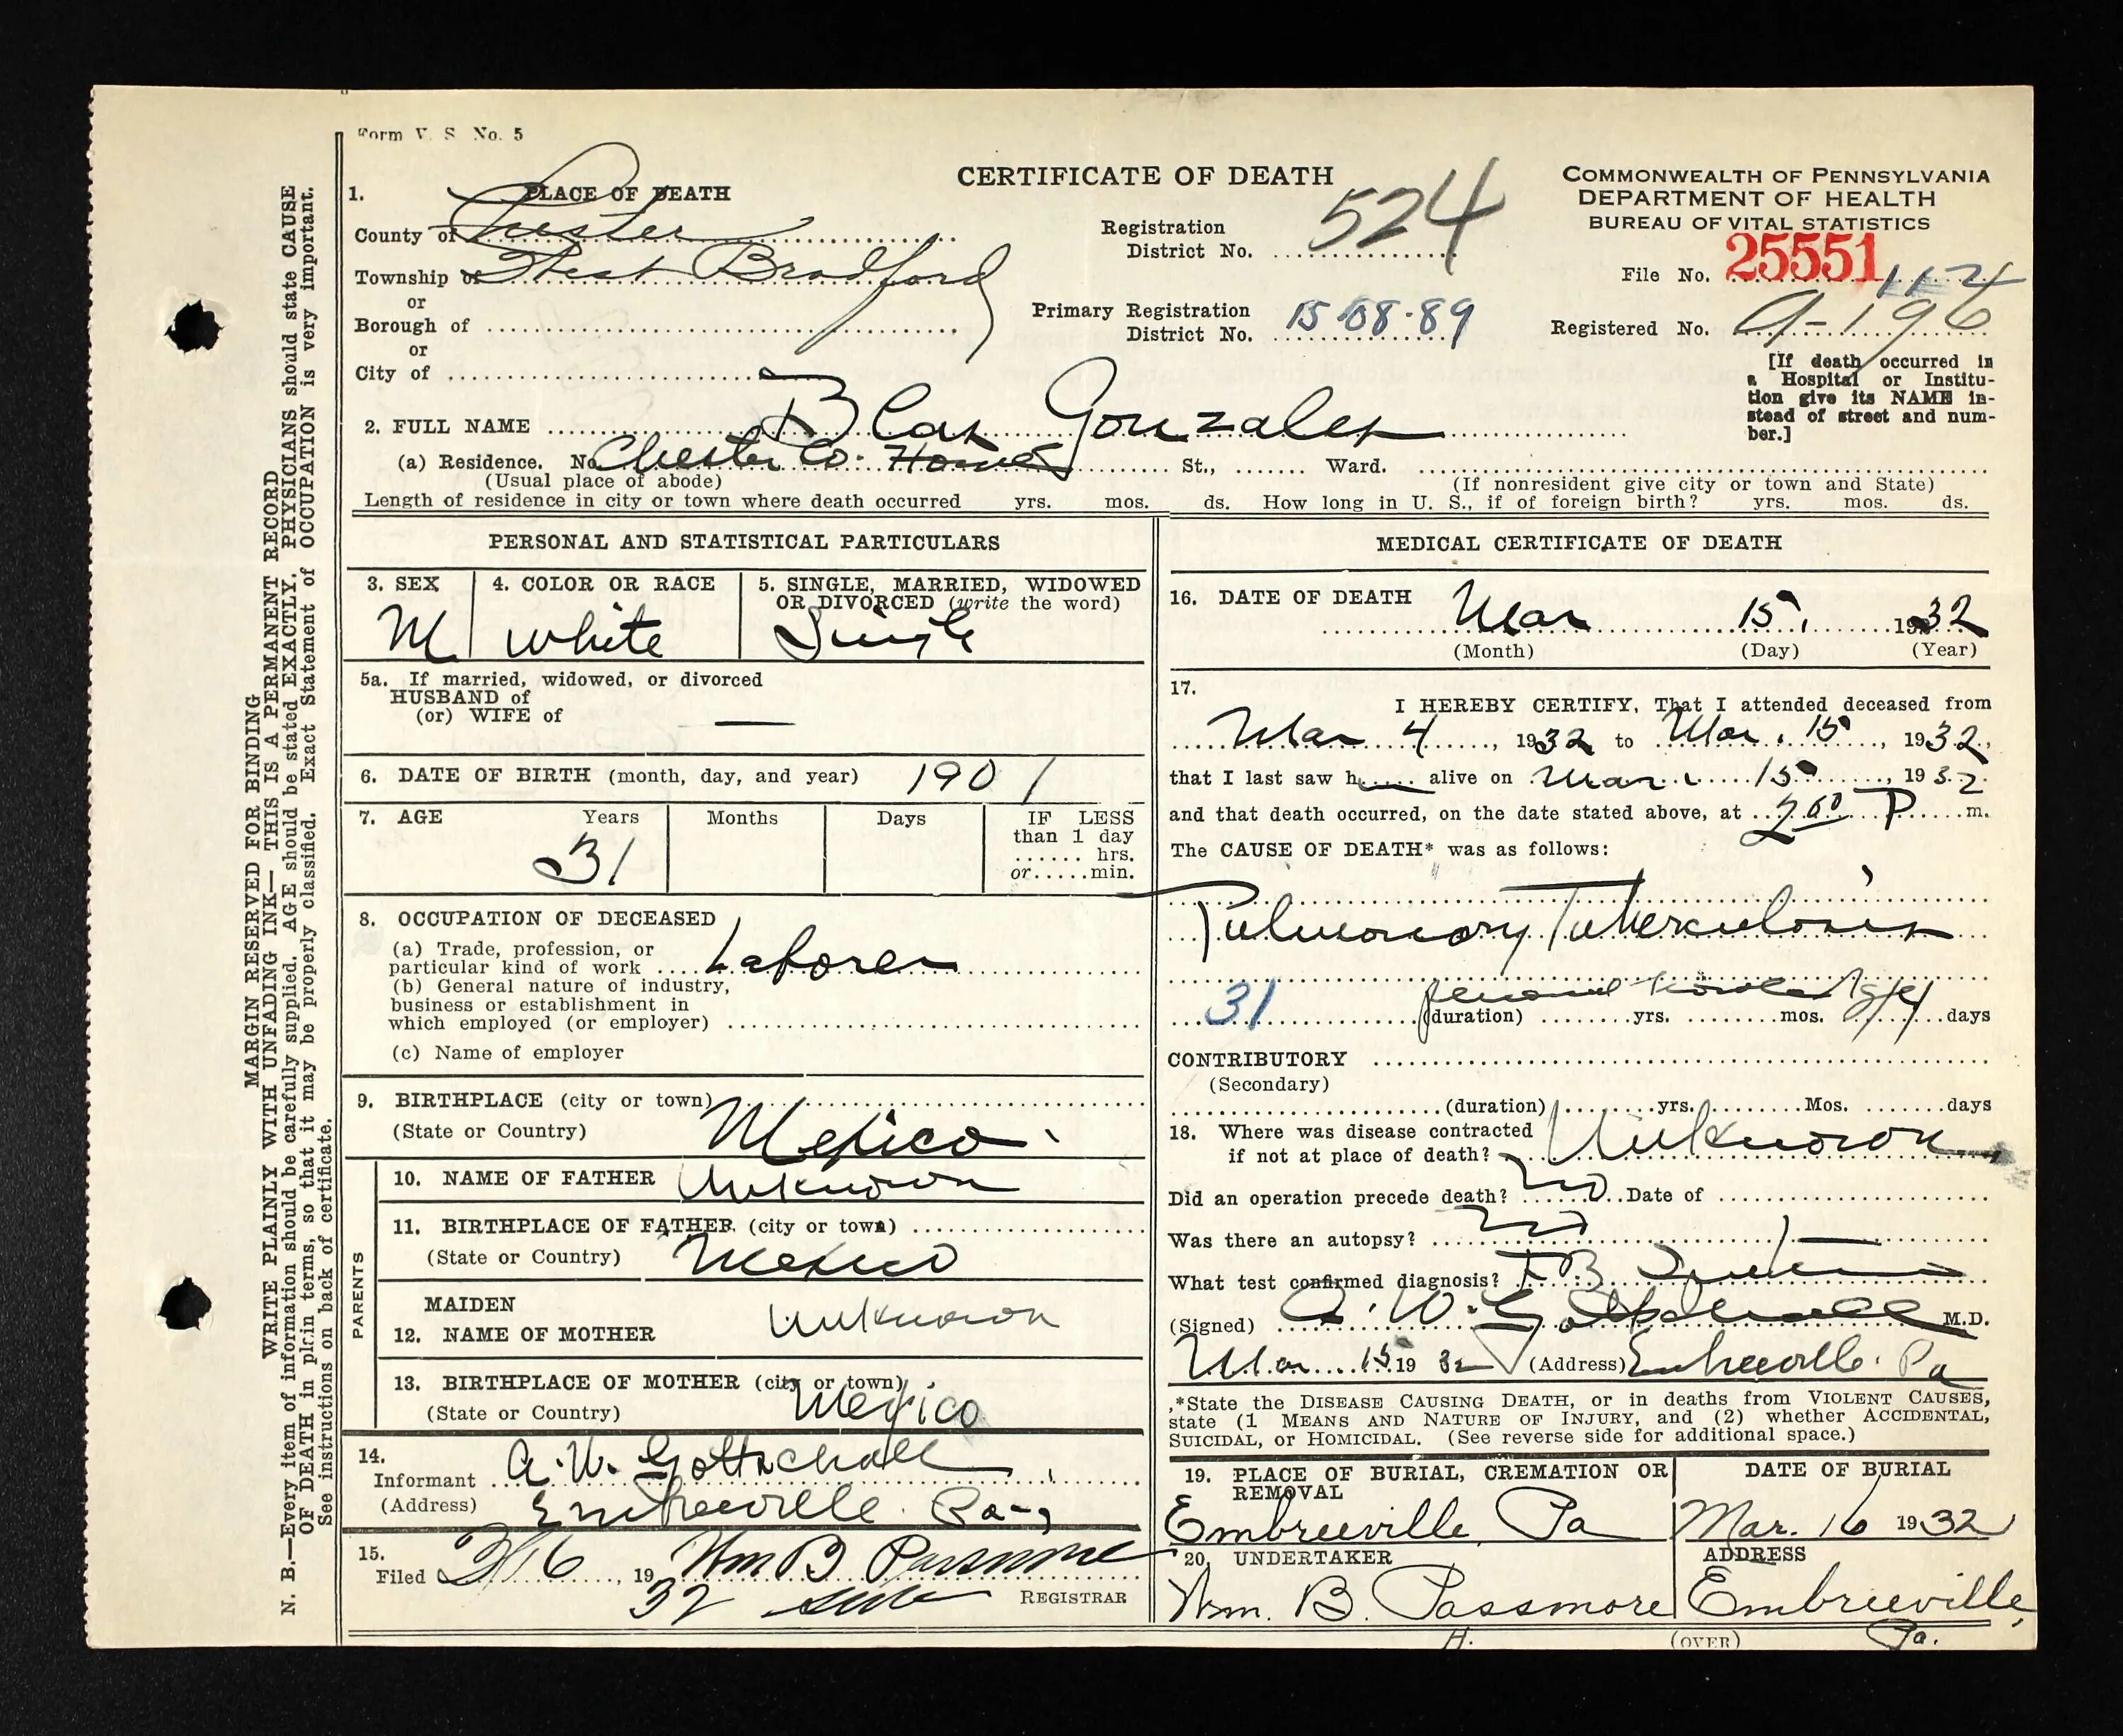 Form V. S. No. 5
CERTIFICATE OF DEATH
COMMONWEALTH OF PENNSYLVANIA
DEPARTMENT OF HEALTH
BUREAU OF VITAL STATISTICS
1. PLACE OF DEATH
County of Chester
Township of West Bradford
or
Borough of
or
City of
Registration District No. 524
Primary Registration District No. 15-08-89
File No. 25551 112
Registered No. A-196
[If death occurred in a Hospital or Institution give its NAME instead of street and number.]
2. FULL NAME Blas Gonzales
(a) Residence. No. Chester Co. Home St., Ward.
(Usual place of abode) (If nonresident give city or town and State)
Length of residence in city or town where death occurred yrs. mos. ds. How long in U. S., if of foreign birth? yrs. mos. ds.
PERSONAL AND STATISTICAL PARTICULARS
3. SEX M
4. COLOR OR RACE White
5. SINGLE, MARRIED, WIDOWED OR DIVORCED (write the word) Single
5a. If married, widowed, or divorced
HUSBAND of
(or) WIFE of —
6. DATE OF BIRTH (month, day, and year) 1901
7. AGE Years Months Days IF LESS than 1 day hrs. or min.
31
8. OCCUPATION OF DECEASED
(a) Trade, profession, or
particular kind of work Laborer
(b) General nature of industry,
business or establishment in
which employed (or employer)
(c) Name of employer
9. BIRTHPLACE (city or town)
(State or Country) Mexico
PARENTS
10. NAME OF FATHER Unknown
11. BIRTHPLACE OF FATHER (city or town)
(State or Country) Mexico
12. MAIDEN NAME OF MOTHER Unknown
13. BIRTHPLACE OF MOTHER (city or town)
(State or Country) Mexico
14. Informant A. W. Gottschall
(Address) Embreeville Pa
15. Filed 3/16, 1932 Wm B Passmore
REGISTRAR
MEDICAL CERTIFICATE OF DEATH
16. DATE OF DEATH Mar 15, 1932
(Month) (Day) (Year)
17. I HEREBY CERTIFY, That I attended deceased from
Mar 4, 1932 to Mar. 15, 1932,
that I last saw h alive on Mar. 15, 1932
and that death occurred, on the date stated above, at 2 P m.
The CAUSE OF DEATH* was as follows:
Pulmonary Tuberculosis
31 (duration) yrs. mos. days
CONTRIBUTORY
(Secondary)
(duration) yrs. Mos. days
18. Where was disease contracted
if not at place of death? Unknown
Did an operation precede death? No Date of
Was there an autopsy? No
What test confirmed diagnosis? T B
(Signed) A. W. Gottschall M.D.
Mar 15 1932 (Address) Embreeville. Pa
*State the DISEASE CAUSING DEATH, or in deaths from VIOLENT CAUSES,
state (1 MEANS AND NATURE OF INJURY, and (2) whether ACCIDENTAL,
SUICIDAL, or HOMICIDAL. (See reverse side for additional space.)
19. PLACE OF BURIAL, CREMATION OR REMOVAL
Embreeville Pa
DATE OF BURIAL
Mar. 16 1932
20. UNDERTAKER
Wm. B. Passmore
ADDRESS
Embreeville, Pa.
H.
(OVER)
MARGIN RESERVED FOR BINDING
WRITE PLAINLY WITH UNFADING INK—THIS IS A PERMANENT RECORD
N. B.—Every item of information should be carefully supplied. AGE should be stated EXACTLY. PHYSICIANS should state CAUSE
OF DEATH in plain terms, so that it may be properly classified. Exact Statement of OCCUPATION is very important.
See instructions on back of certificate.